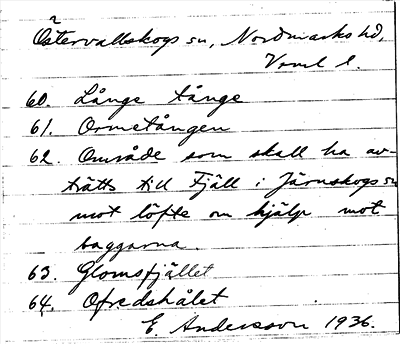 2
Östervallskogs sn, Nordmarks hd,
Verml l.
60. Långe tånge
61. Ormetången
62. Område som skall ha av-
trätts till Fjäll i Järnskogs sn
mot löfte om hjälp mot
baggarna.
63. Glomsfjället
64. Ofredshålet
E. Andersson 1936.